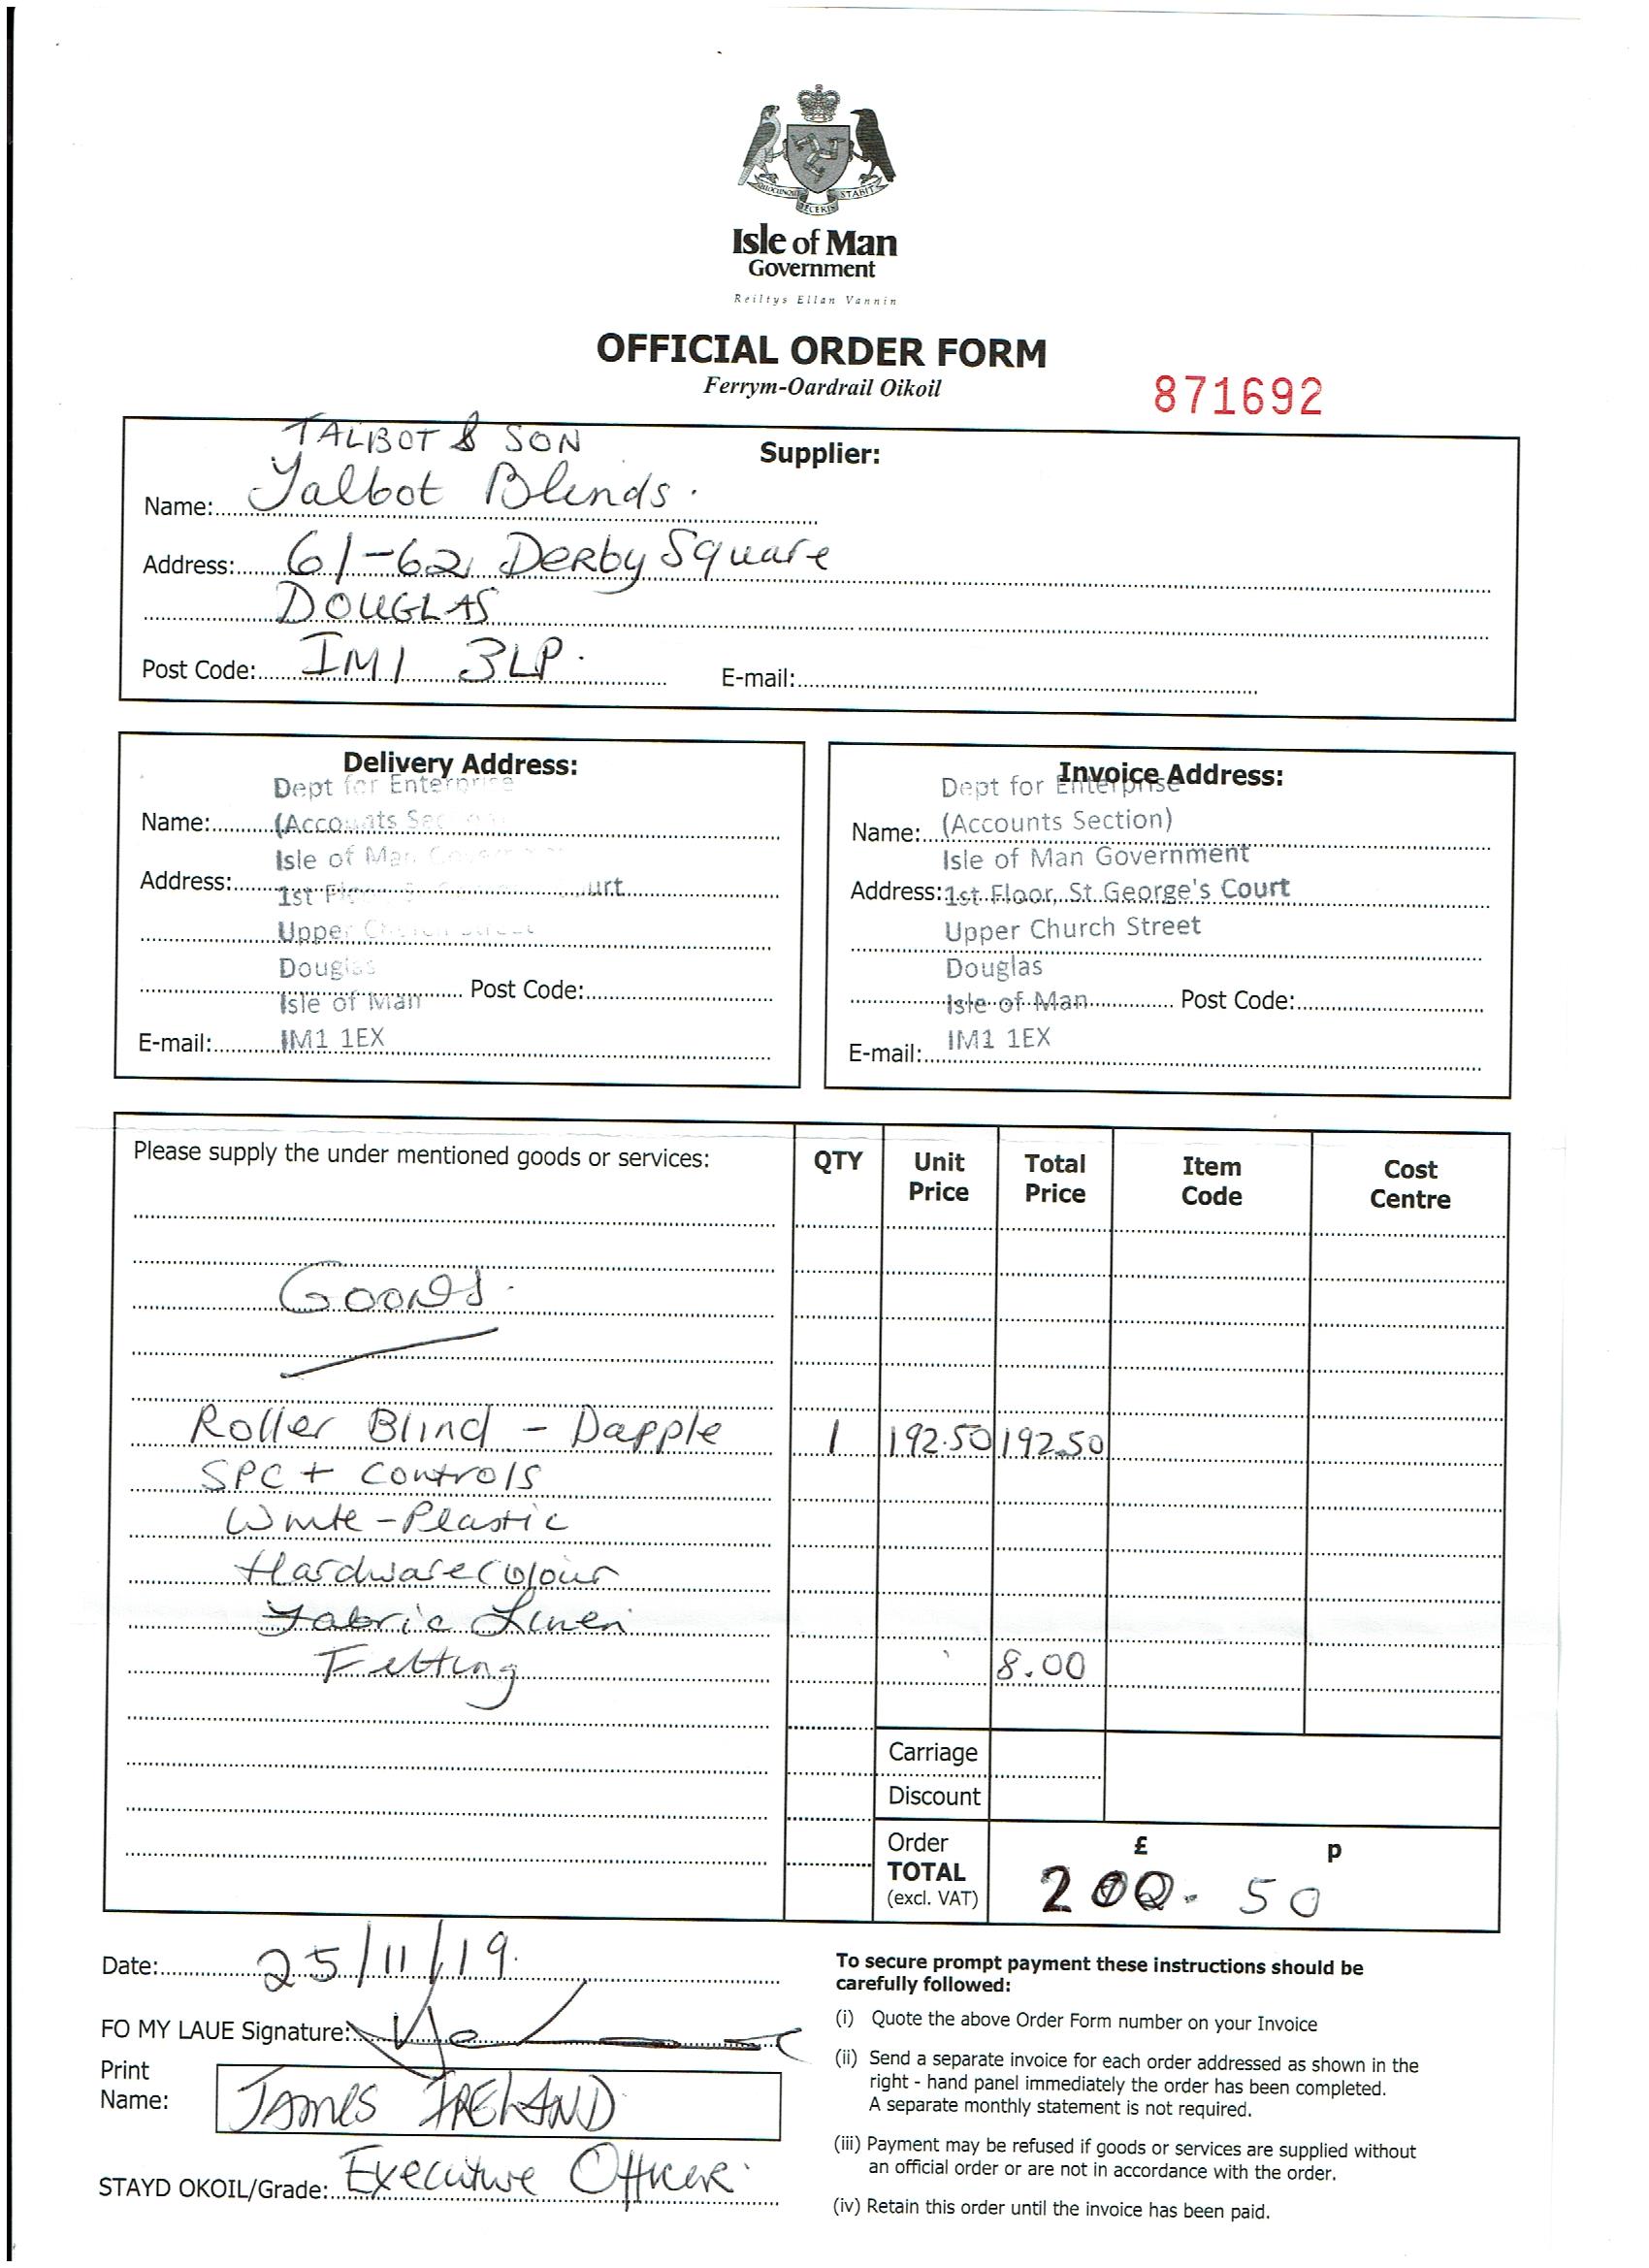 QUOCUNQUE
JECERIS
STABIT
Isle of Man
Government
Reiltys Ellan Vannin
OFFICIAL ORDER FORM
Ferrym-Oardrail Oikoil
871692
Supplier:
TALBOT & SON
Name: Talbot Blinds.
Address: 61-62, Derby Square
DOUGLAS
Post Code: IM1 3LP. E-mail:
Delivery Address:
Dept for Enterprise
Name: (Accounts Section)
Isle of Man Government
Address: 1st Floor, St George's Court
Upper Church Street
Douglas
Isle of Man Post Code:
E-mail: IM1 1EX
Invoice Address:
Dept for Enterprise
Name: (Accounts Section)
Isle of Man Government
Address: 1st Floor, St George's Court
Upper Church Street
Douglas
Isle of Man Post Code:
IM1 1EX
E-mail:
Please supply the under mentioned goods or services: QTY Unit Price Total Price Item Code Cost Centre
Goods.
Roller Blind - Dapple 1 192.50 192.50
SPC + Controls
White - Plastic
Hardware colour
Fabric Linen
Fitting 8.00
Carriage
Discount
Order £ p
TOTAL 200. 50
(excl. VAT)
Date: 25/11/19.
FO MY LAUE Signature:
Print
Name: JAMES IRELAND
STAYD OKOIL/Grade: Executive Officer.
To secure prompt payment these instructions should be
carefully followed:
(i) Quote the above Order Form number on your Invoice
(ii) Send a separate invoice for each order addressed as shown in the
right - hand panel immediately the order has been completed.
A separate monthly statement is not required.
(iii) Payment may be refused if goods or services are supplied without
an official order or are not in accordance with the order.
(iv) Retain this order until the invoice has been paid.